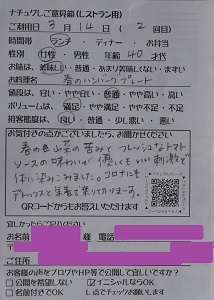 ナチュグレご意見箱(レストラン用)
ご利用日 3月14日(2回目)
時間帯 ランチ ・ ディナー ・ お弁当
女性・男性 年齢 40才代
お味は、美味しい・普通・あまり美味しくない・まずい
お料理名 春のハンバーグプレート
値段は、安い・やや安い・普通・やや高い・高い
ボリュームは、満足・やや満足・やや不足・不足
接客態度は、良い・普通・少し悪い・悪い
お気付きの点がございましたら、お聞かせください
春の山菜の苦みとフレッシュなトマト
ソースの味わいが優しくもいい刺激で
体に染みこみました。コロナも
デトックスと栄養で乗り切ります。
QRコードからもお答えいただけます
宜しかったらご記入ください
お名前 様 電話
〒
ご住所
お客様の声をブログやHP等で公開して宜しいですか?
公開を希望しない イニシャルならOK
名前付きでOK し点でチェックお願いします